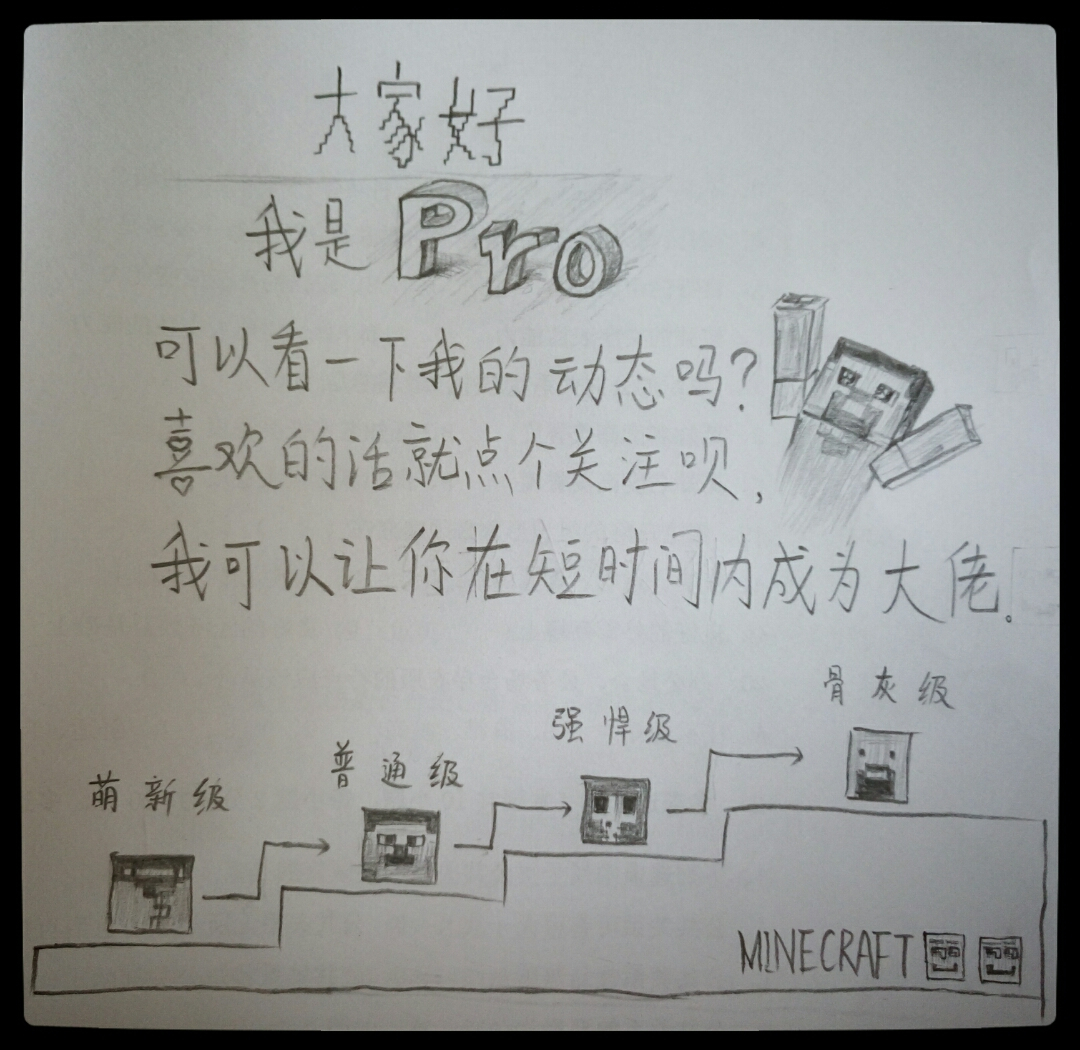 大家好
我是Pro
可以看一下我的动态吗?
喜欢的话就点个关注呗,
我可以让你在短时间内成为大佬。
萌新级
普通级
强悍级
骨灰级
MINECRAFT